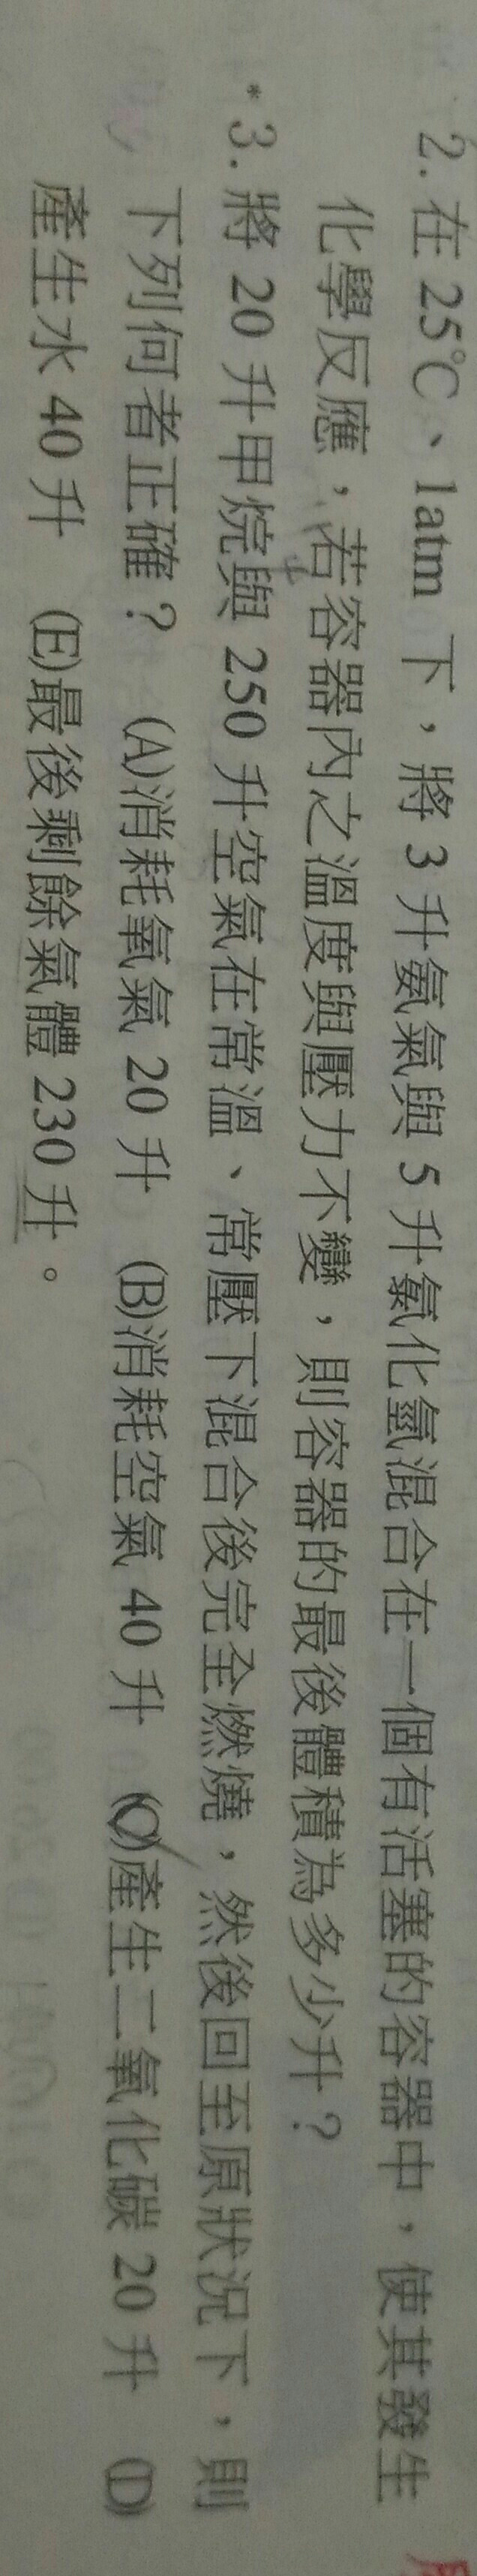 2. 在 25℃、1atm 下，將 3 升氨氣與 5 升氯化氫混合在一個有活塞的容器中，使其發生
化學反應，若容器內之溫度與壓力不變，則容器的最後體積為多少升？
*3. 將 20 升甲烷與 250 升空氣在常溫、常壓下混合後完全燃燒，然後回至原狀況下，則
下列何者正確？ (A)消耗氧氣 20 升 (B)消耗空氣 40 升 (C)產生二氧化碳 20 升 (D)
產生水 40 升 (E)最後剩餘氣體 230 升。